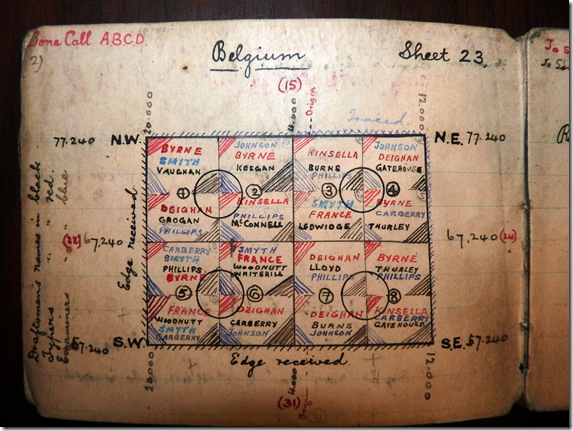 Bone Call ABCD
2)
Belgium
Sheet 23.
(15)
20.000
4.000
Origin
12.000
Traced.
77.240 N.W.
N.E. 77.240
BYRNE
SMYTH
VAUGHAN
JOHNSON
BYRNE
KEEGAN
KINSELLA
BURNS
PHILLIPS
JOHNSON
DEIGHAN
GATEHOUSE
1
2
3
4
DEIGHAN
GROGAN
PHILLIPS
KINSELLA
PHILLIPS
McCONNELL
SMYTH
FRANCE
LEDWIDGE
BYRNE
CARBERRY
THURLEY
(22) 67.240
67.240 (24)
CARBERRY
SMYTH
PHILLIPS
BYRNE
SMYTH
FRANCE
WOODNUTT
WHITEHILL
DEIGHAN
LLOYD
PHILLIPS
BYRNE
THURLEY
PHILLIPS
5
6
7
8
FRANCE
WOODNUTT
SMYTH
CARBERRY
DEIGHAN
CARBERRY
JOHNSON
DEIGHAN
BURNS
JOHNSON
KINSELLA
CARBERRY
GATEHOUSE
57.240 S.W.
S.E. 57.240
Edge received
Edge received
20.000
4.000
12.000
(31)
Draftsmen's names in black
Typers " " red.
Examiners " " blue